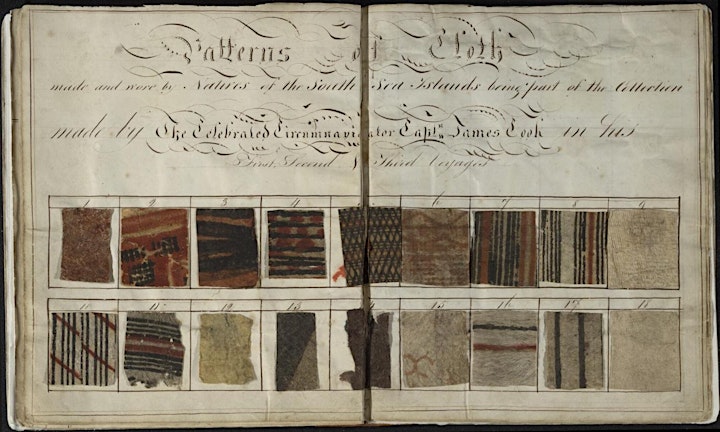 Patterns of Cloth
made and wore by Natives of the South Sea Islands being part of the Collection
made by The Celebrated Circumnavigator Captn. James Cook in his
First, Second & Third Voyages
1 2 3 4 5 6 7 8 9
10 11 12 13 14 15 16 17 18